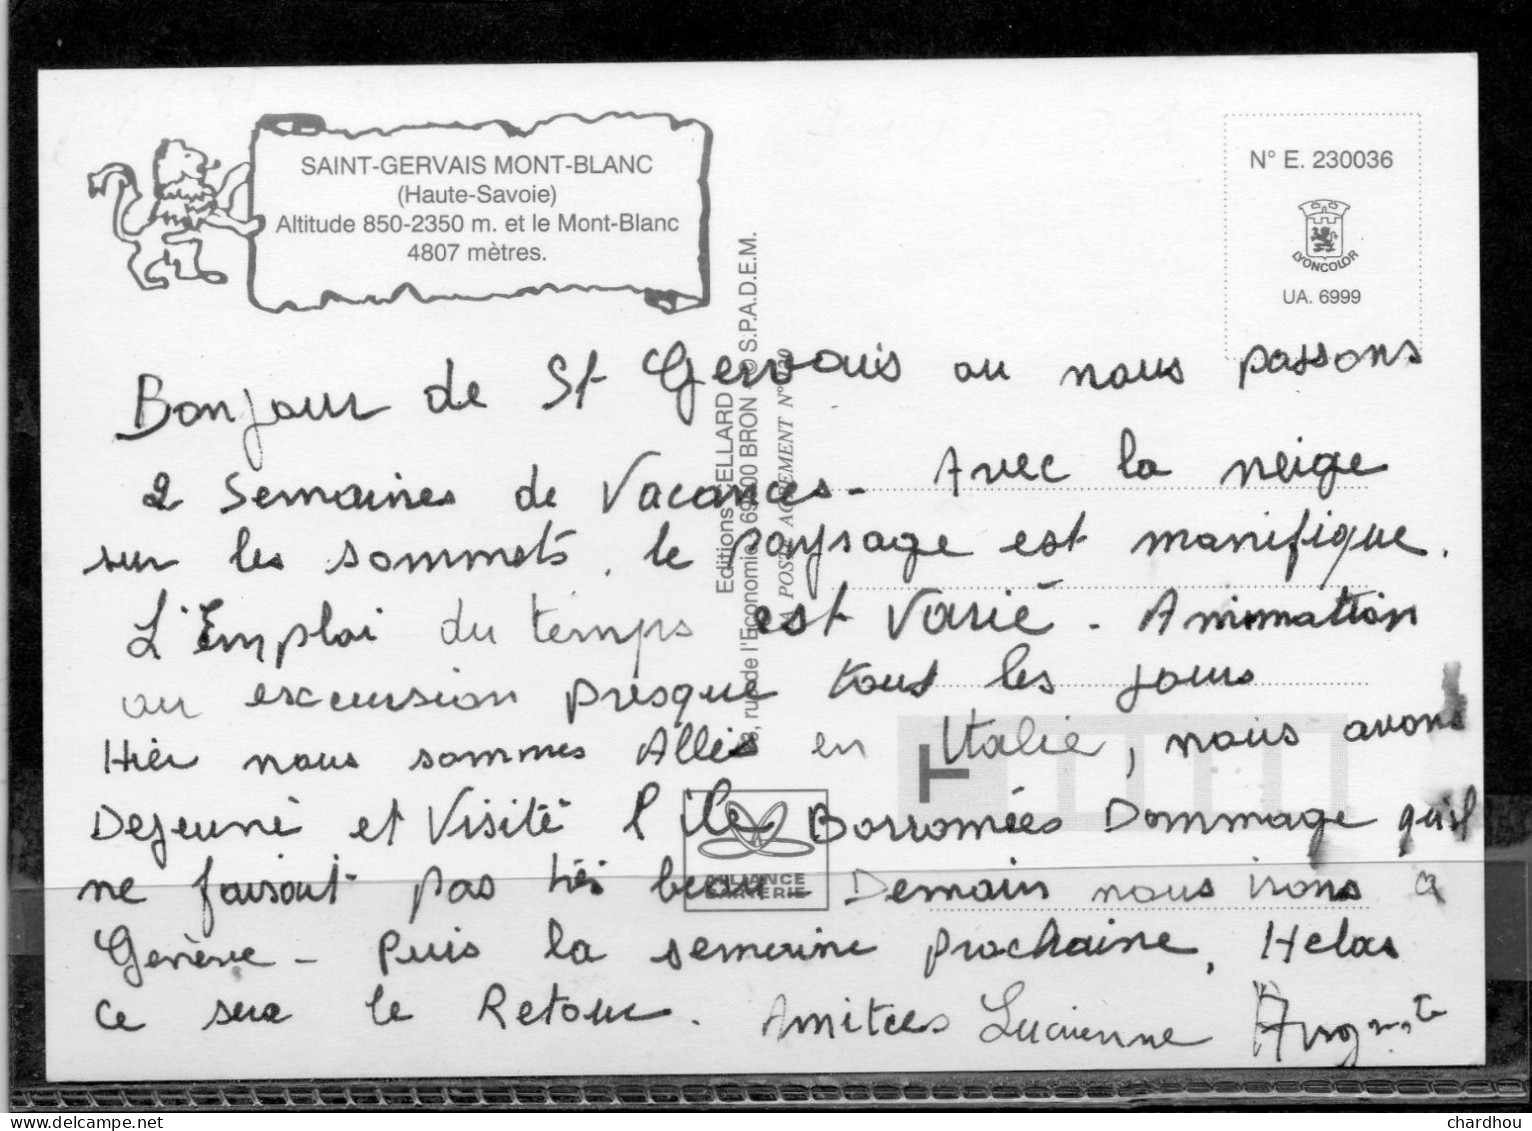 SAINT-GERVAIS MONT-BLANC
(Haute-Savoie)
Altitude 850-2350 m. et le Mont-Blanc
4807 mètres.
N° E. 230036
LYONCOLOR
UA. 6999
Bonjour de St Gervais ou nous passons
2 Semaines de Vacances - Avec la neige
sur les sommets, le paysage est manifique.
L'Emploi du temps est Varié - Animation
ou excursion presque tous les jours
Hier nous sommes Allés en Italie, nous avons
Dejeuné et Visité l'île Borromées Dommage qu'il
ne faisait pas très beau - Demain nous irons a
Genève - Puis la semaine prochaine, Helas
ce sera le Retour. Amitiés Lucienne
Editions CELLARD
rue de l'Economie 69500 BRON © S.P.A.D.E.M.
LA POSTE AGREMENT N°
T
ALLIANCE
CARTERIE
delcampe.net
chardhou